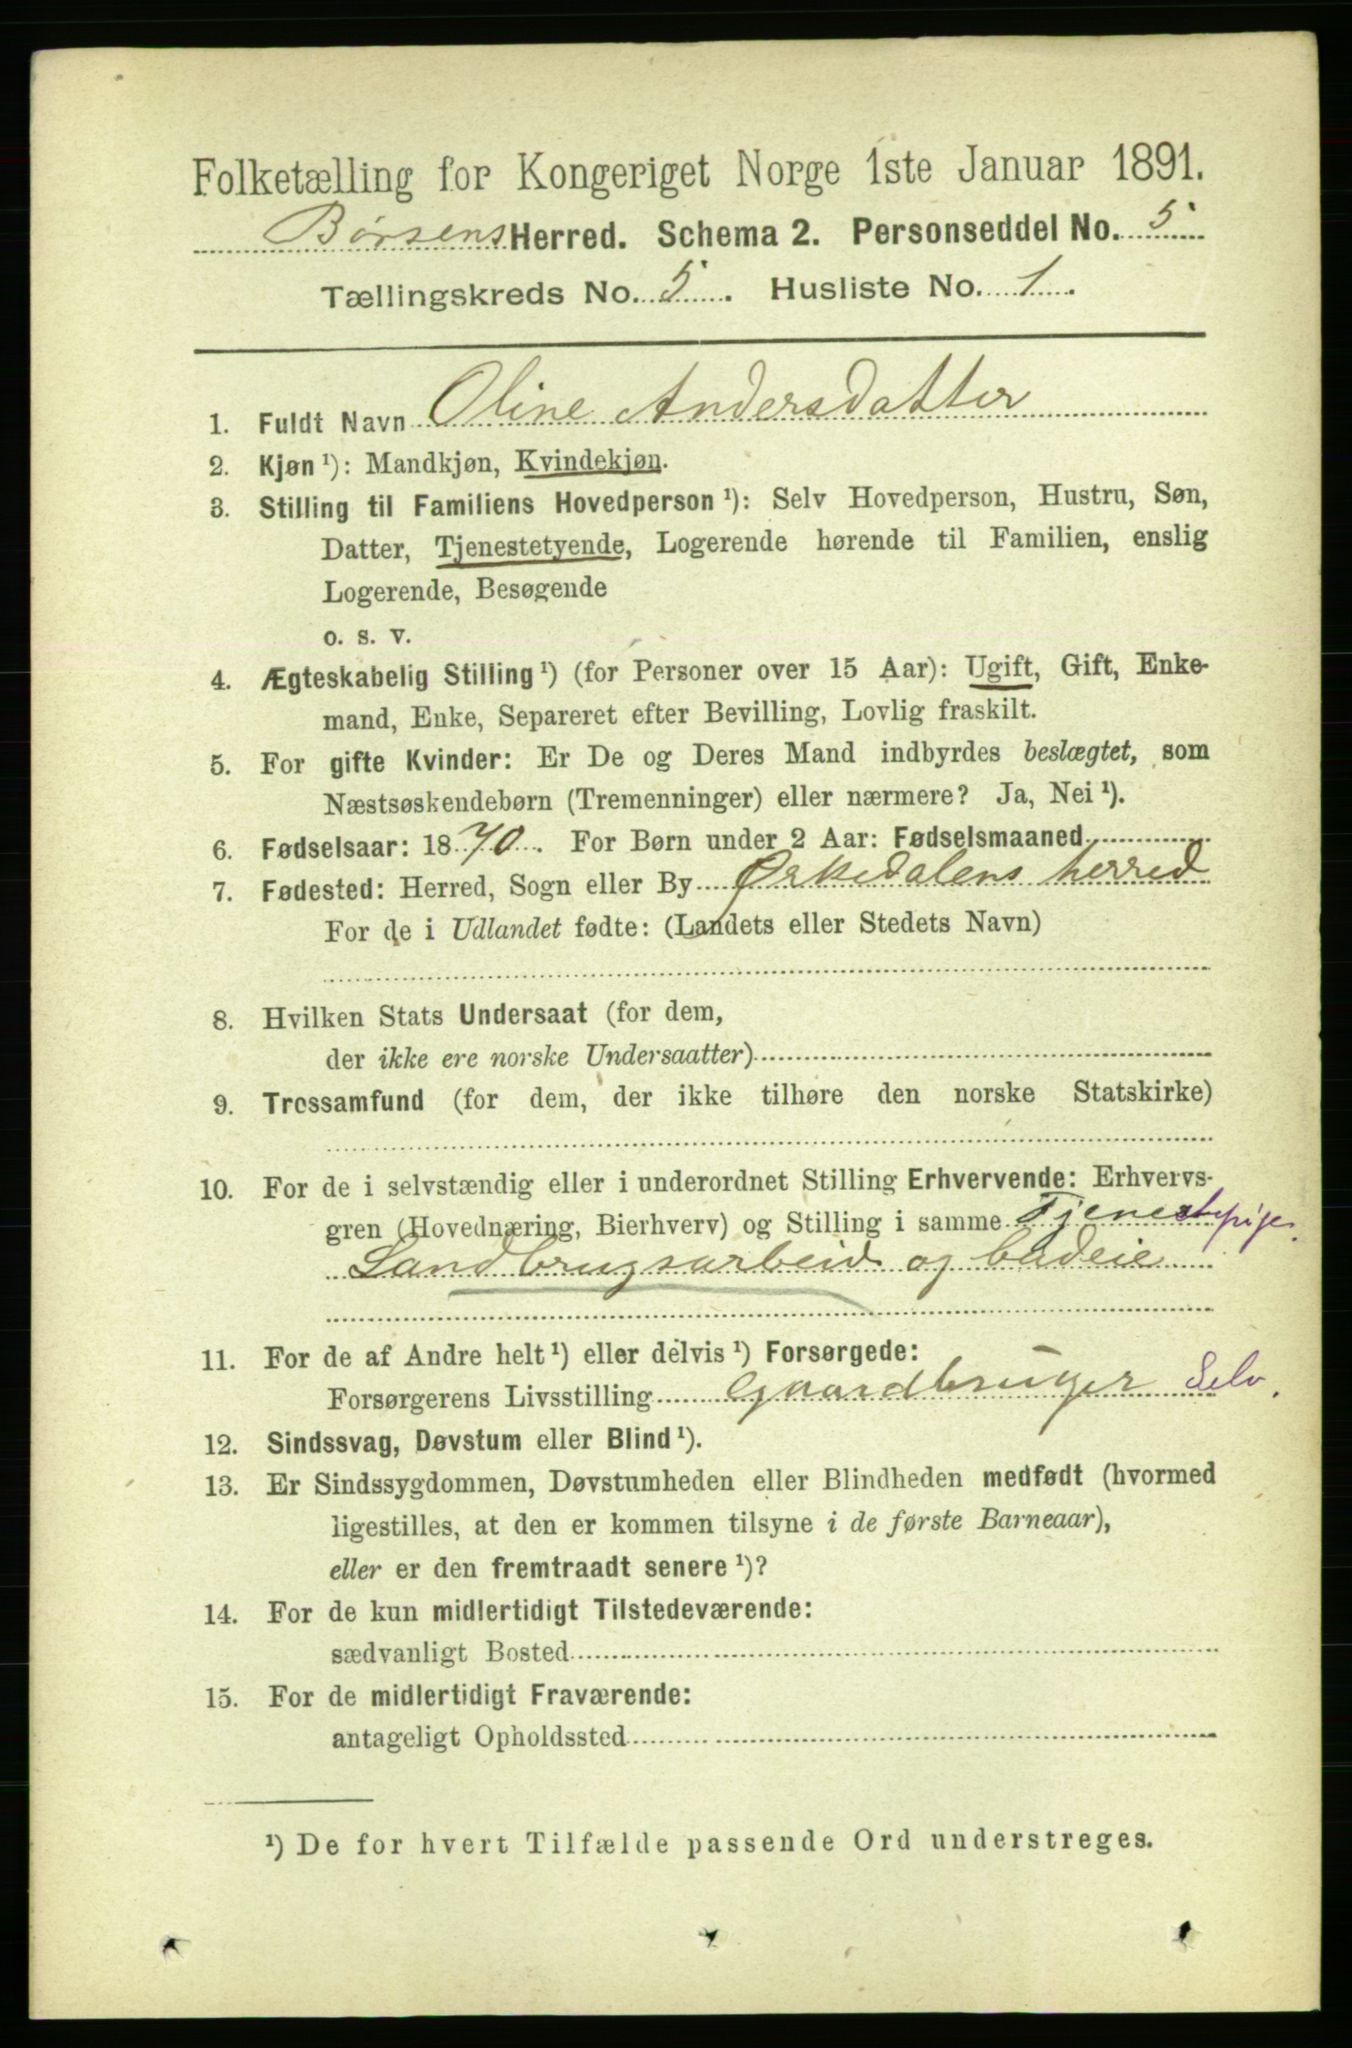 Folketælling for Kongeriget Norge 1ste Januar 1891.
Børsens Herred. Schema 2. Personseddel No. 5
Tællingskreds No. 5. Husliste No. 1.
1. Fuldt Navn Oline Andersdatter
2. Kjøn ¹): Mandkjøn, Kvindekjøn.
3. Stilling til Familiens Hovedperson ¹): Selv Hovedperson, Hustru, Søn,
Datter, Tjenestetyende, Logerende hørende til Familien, enslig
Logerende, Besøgende
o. s. v.
4. Ægteskabelig Stilling ¹) (for Personer over 15 Aar): Ugift, Gift, Enke-
mand, Enke, Separeret efter Bevilling, Lovlig fraskilt.
5. For gifte Kvinder: Er De og Deres Mand indbyrdes beslægtet, som
Næstsøskendebørn (Tremenninger) eller nærmere? Ja, Nei ¹).
6. Fødselsaar: 1870. For Børn under 2 Aar: Fødselsmaaned
7. Fødested: Herred, Sogn eller By Ørkedalens herred
For de i Udlandet fødte: (Landets eller Stedets Navn)
8. Hvilken Stats Undersaat (for dem,
der ikke ere norske Undersaatter)
9. Trossamfund (for dem, der ikke tilhøre den norske Statskirke)
10. For de i selvstændig eller i underordnet Stilling Erhvervende: Erhvervs-
gren (Hovednæring, Bierhverv) og Stilling i samme Tjenestepige.
Landbrugsarbeid og budeie
11. For de af Andre helt ¹) eller delvis ¹) Forsørgede:
Forsørgerens Livsstilling Gaardbruger Selv.
12. Sindssvag, Døvstum eller Blind ¹).
13. Er Sindssygdommen, Døvstumheden eller Blindheden medfødt (hvormed
ligestilles, at den er kommen tilsyne i de første Barneaar),
eller er den fremtraadt senere ¹)?
14. For de kun midlertidigt Tilstedeværende:
sædvanligt Bosted
15. For de midlertidigt Fraværende:
antageligt Opholdssted
¹) De for hvert Tilfælde passende Ord understreges.